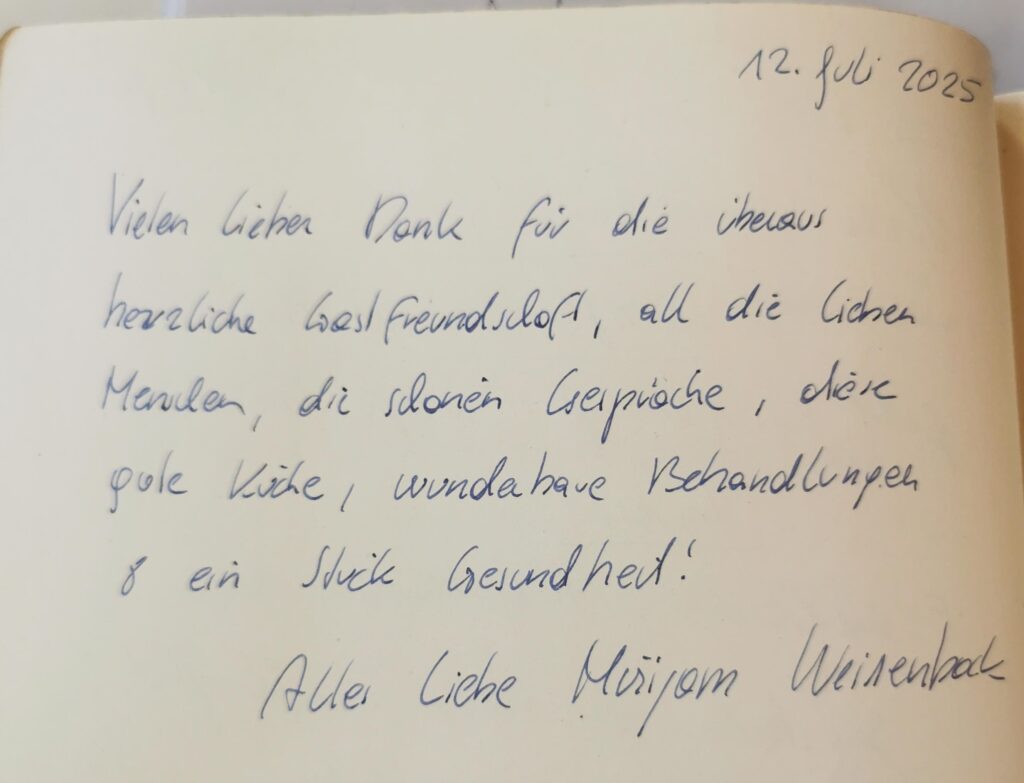 12. Juli 2025
Vielen lieben Dank für die überaus
herzliche Gastfreundschaft, all die lieben
Menschen, die schönen Gespräche, diese
gute Küche, wunderbare Behandlungen
& ein Stück Gesundheit!
Alles Liebe Mirijam Weisenback